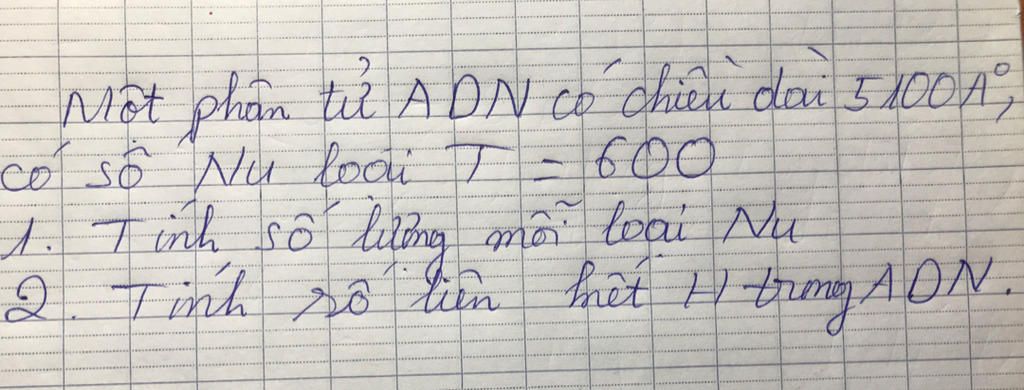 Một phân tử ADN có chiều dài 5100A°,
có số Nu loại T = 600
1. Tính số lượng mỗi loại Nu
2. Tính số liên kết H trong ADN.